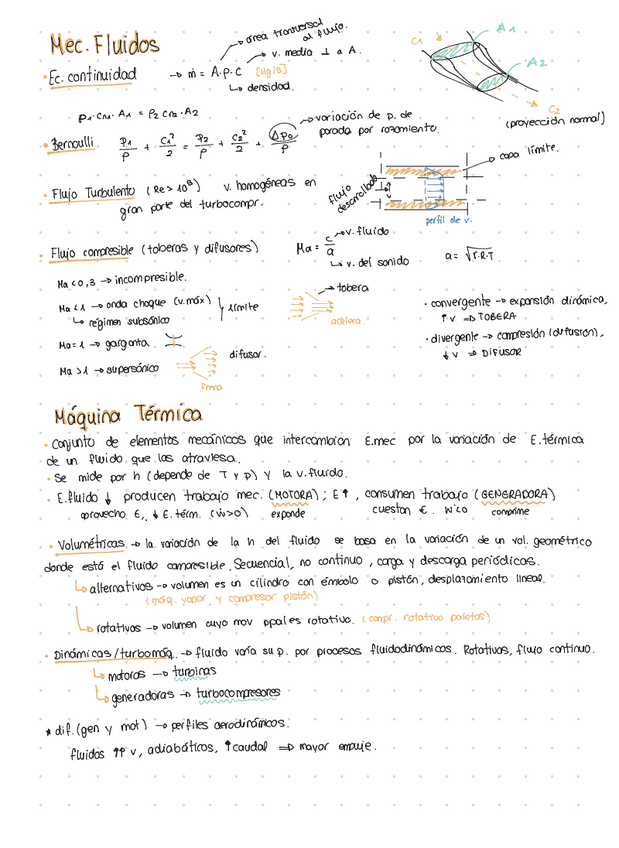 Mec. Fluidos
área transversal al flujo.
• Ec. continuidad → ṁ = A·ρ·C [kg/s]
v. media ⊥ a A.
densidad.
C1 A1
A2
C2
(proyección normal)
ρ1·Cn1·A1 = ρ2 Cn2·A2
• Bernoulli p1/ρ + C1²/2 = p2/ρ + C2²/2 + Δp0/ρ
→ variación de p. de parada por rozamiento.
capa límite.
• Flujo Turbulento (Re > 10⁸) v. homogéneas en
gran parte del turbocompr.
flujo desarrollado
perfil de v.
• Flujo compresible (toberas y difusores) Ma = c/a
v. fluido
v. del sonido
a = √γ·R·T
Ma < 0,3 → incompresible.
Ma < 1 → onda choque (v. máx) } límite
↳ régimen subsónico
Ma = 1 → garganta
Ma > 1 → supersónico
→ tobera
acelera.
difusor.
frena
• convergente → expansión dinámica,
↑ v ⇒ TOBERA
• divergente → compresión (difusión),
↓ v ⇒ DIFUSOR
Máquina Térmica
• Conjunto de elementos mecánicos que intercambian E.mec por la variación de E.térmica
de un fluido que las atraviesa.
• Se mide por h (depende de T y p) y la v. fluido.
• E.fluido ↓ producen trabajo mec. (MOTORA); E↑, consumen trabajo (GENERADORA)
aprovecho E, ↓ E.térm. (ẇ>0) expande cuestan €. ẇ<0 comprime
• Volumétricas → la variación de la h del fluido se basa en la variación de un vol. geométrico
donde está el fluido compresible. Secuencial, no continuo, carga y descarga periódicas.
↳ alternativos → volumen es un cilindro con émbolo o pistón, desplazamiento lineal.
(máq. vapor y compresor pistón)
↳ rotativos → volumen cuyo mov ppal es rotativo. (compr. rotativo paletas)
• Dinámicas/turbomáq. → fluido varía su p. por procesos fluidodinámicos. Rotativos, flujo continuo.
↳ motoras → turbinas
↳ generadoras → turbocompresores
* dif. (gen y mot) → perfiles aerodinámicos.
fluidos ↑↑ v, adiabáticos, ↑ caudal ⇒ mayor empuje.